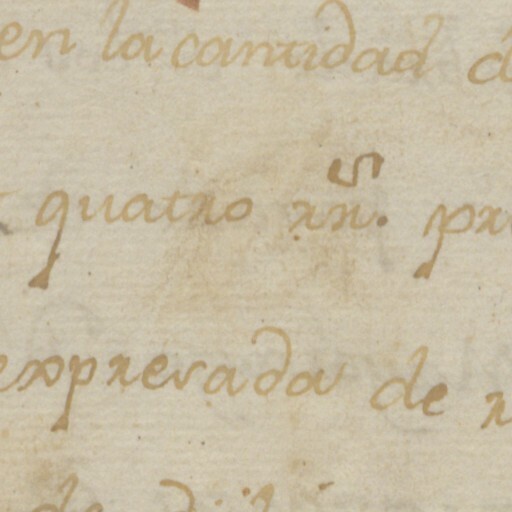 en la cantidad d
quatro rn.s pr
expresada de r